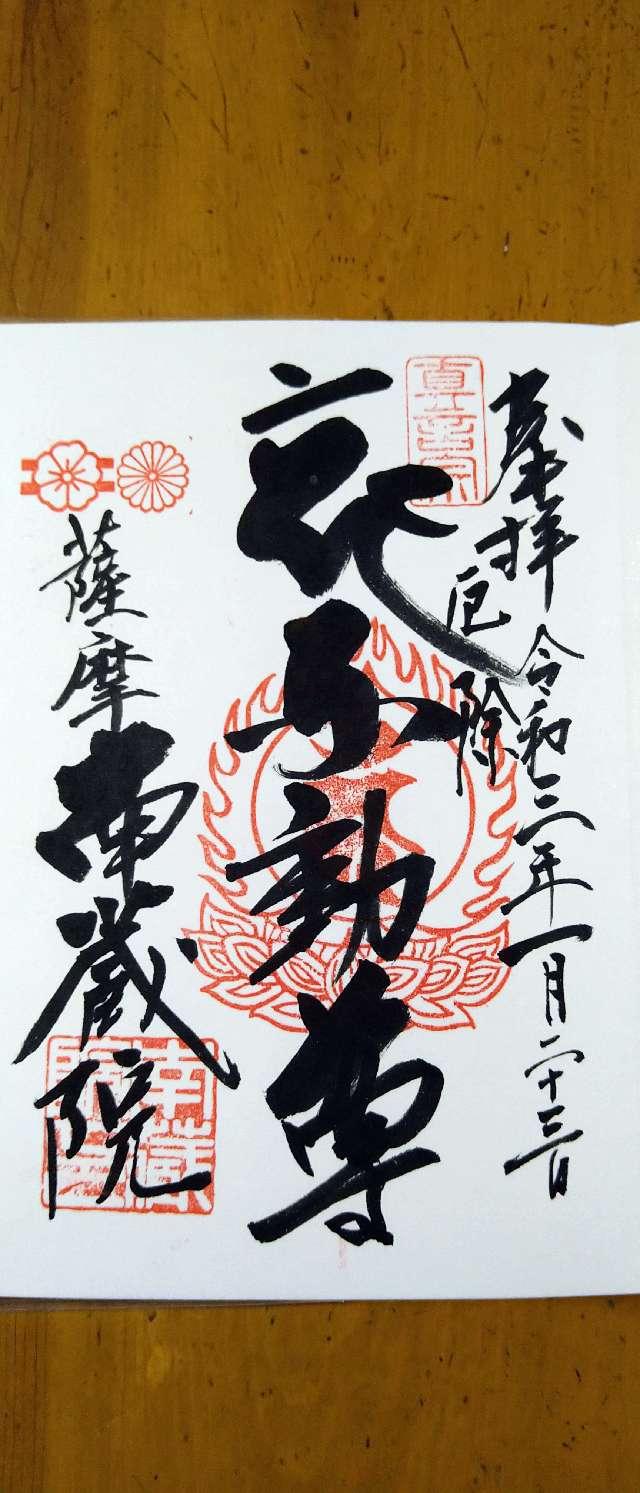 奉拝 令和三年一月二十三日
真言宗
厄除
花不動尊
薩摩 南蔵院
南蔵
院印